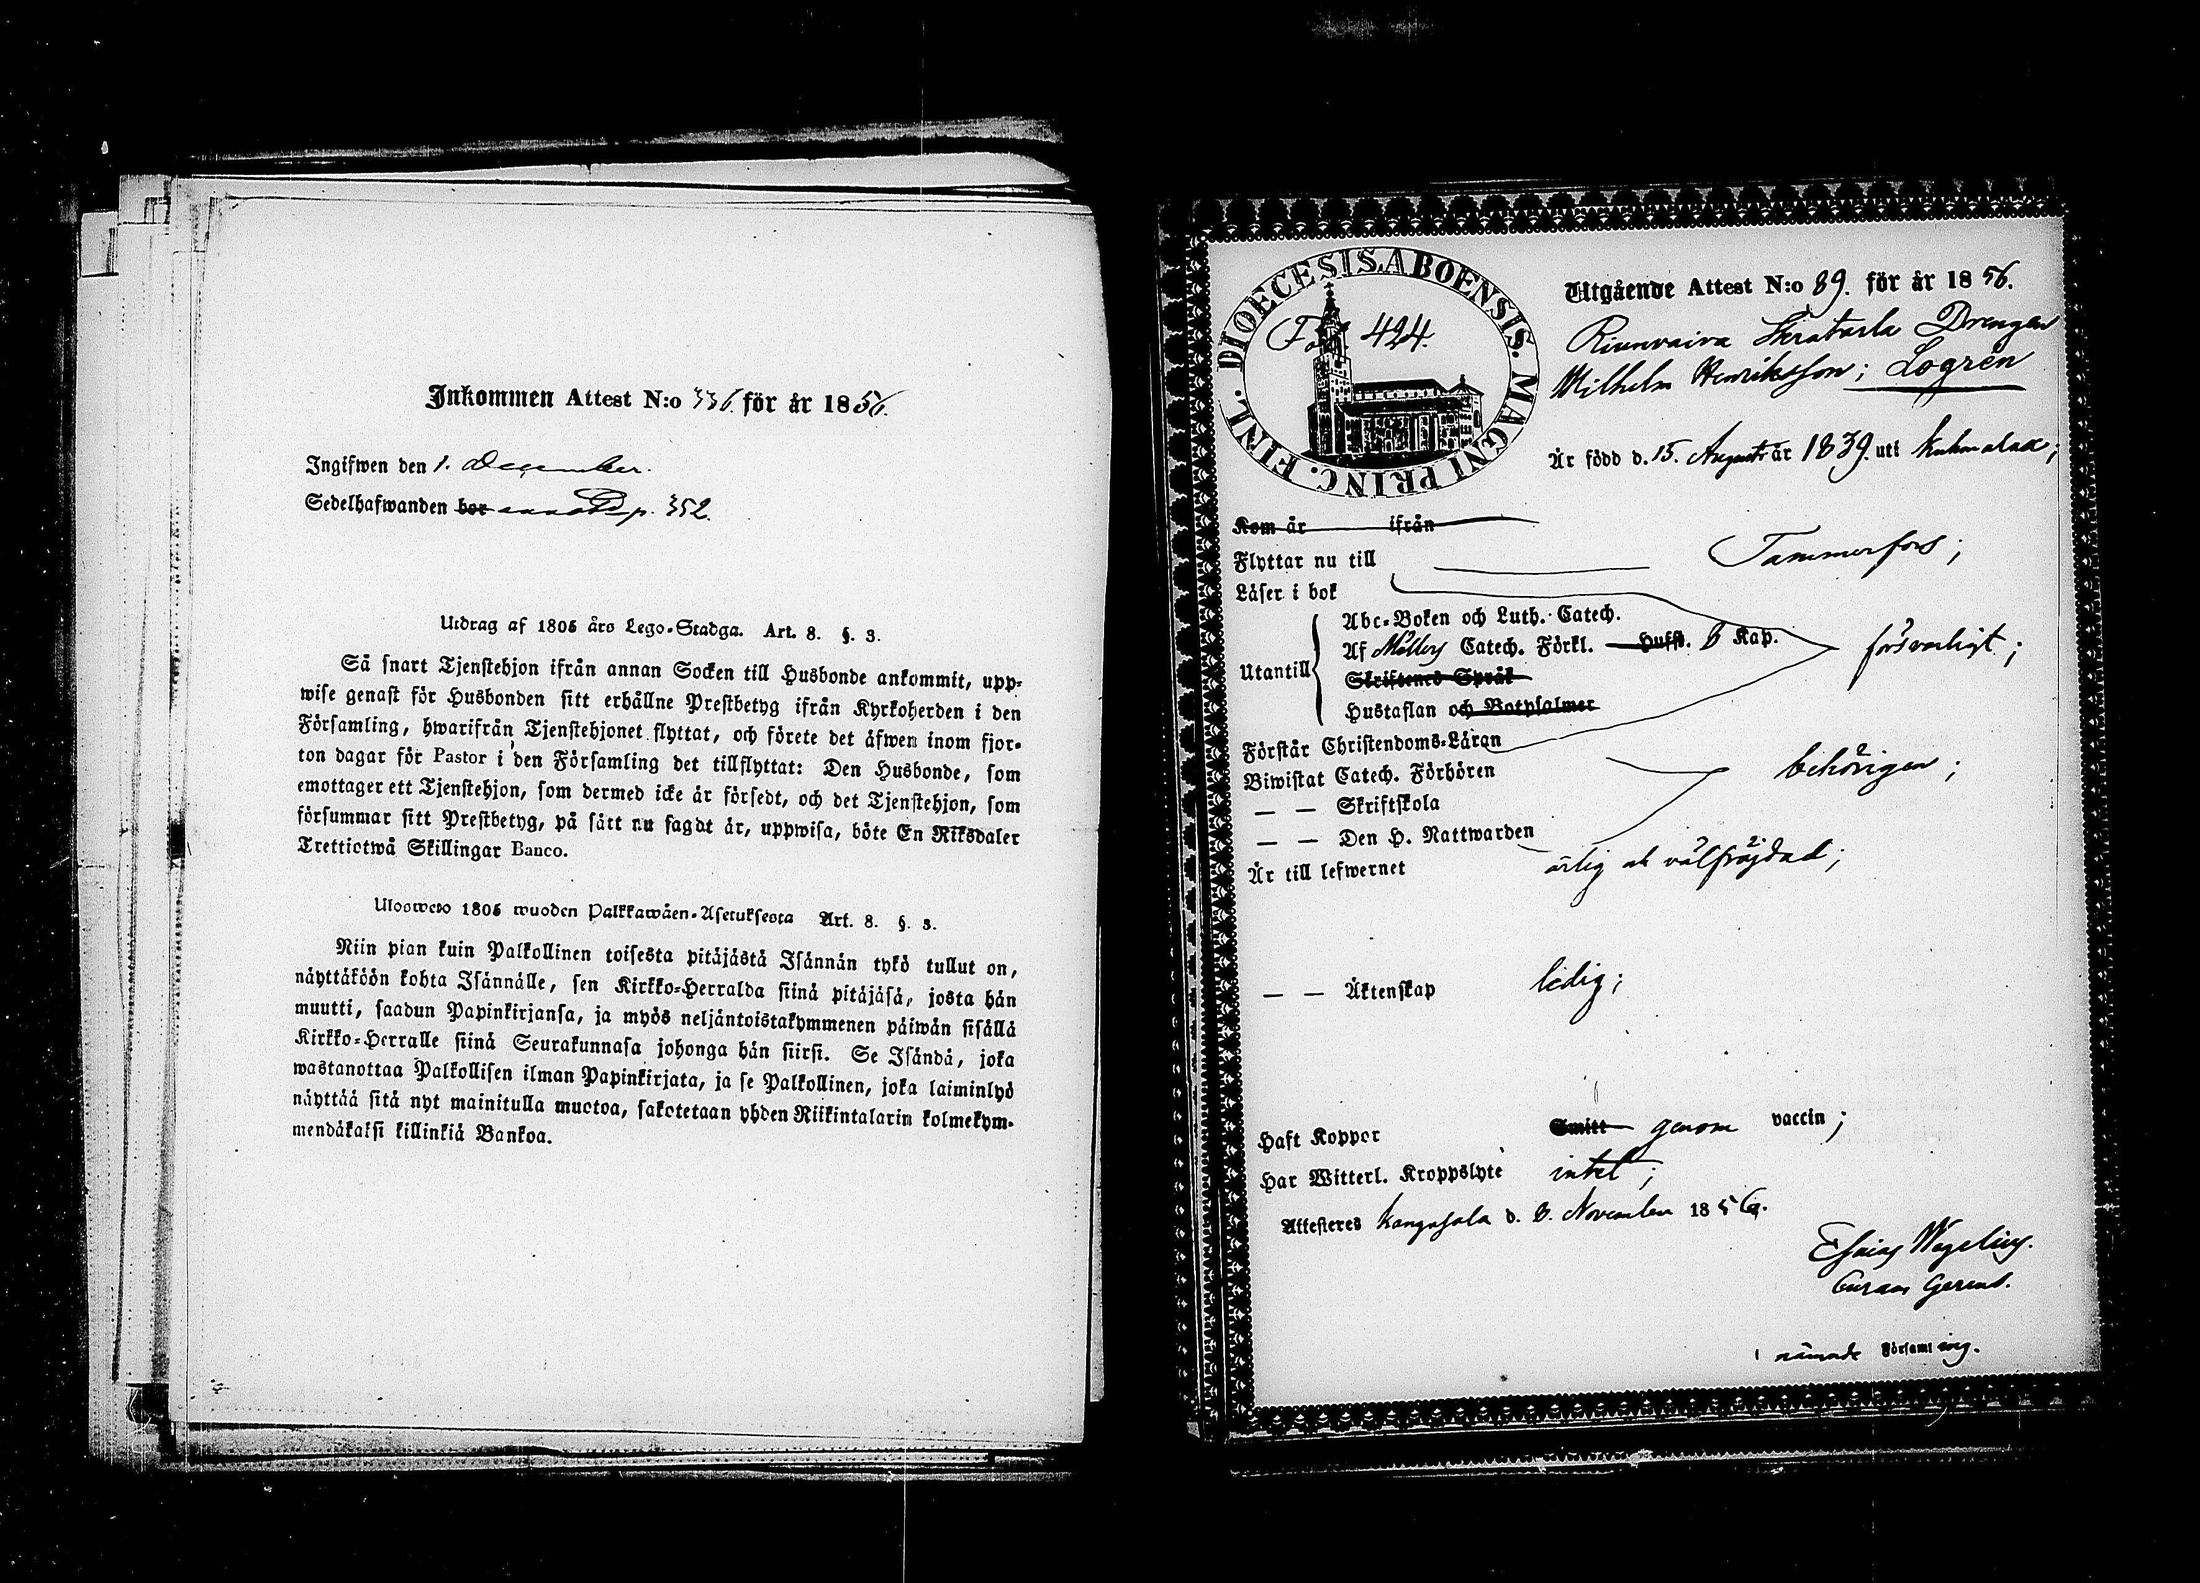 Inkommen Attest N:o 336. för år 1856.
Ingifwen den 1. December.
Sedelhafwanden bor annoted p. 352.
Utdrag af 1805 års Lego-Stadga. Art. 8. §. 3.
Så snart Tjenstehjon ifrån annan Socken till Husbonde ankommit, upp-
wise genast för Husbonden sitt erhållne Prestbetyg ifrån Kyrkoherden i den
Församling, hwarifrån Tjenstehjonet flyttat, och förete det äfwen inom fjor-
ton dagar för Pastor i den Församling det tillflyttat: Den Husbonde, som
emottager ett Tjenstehjon, som dermed icke är försedt, och det Tjenstehjon, som
försummar sitt Prestbetyg, på sätt nu sagdt är, uppwisa, böte En Riksdaler
Trettiotwå Skillingar Banco.
Ulosweto 1805 wuoden Palkkawäen-Asetuksesta Art. 8. §. 3.
Niin pian kuin Palkollinen toisesta pitäjästä Isännän tykö tullut on,
näyttäköön kohta Isännälle, sen Kirkko-Herralda siinä pitäjäsä, josta hän
muutti, saadun Papinkirjansa, ja myös neljäntoistakymmenen päiwän sisällä
Kirkko-Herralle siinä Seurakunnasa johonga hän siirsi. Se Isändä, joka
wastanottaa Palkollisen ilman Papinkirjata, ja se Palkollinen, joka laiminlyö
näyttää sitä nyt mainitulla muotoa, sakotetaan yhden Riikintalarin kolmekym-
mendäkaksi killinkiä Bankoa.
DIOECESIS. ABOENSIS. MAGNI PRINC. FINL.
Fol. 424.
Utgående Attest N:o 89. för år 1856.
Drengen
Wilhelm Henriksson; Logrén
Är född d. 15. Augusti år 1839. uti Kuhmalax;
Kom år ifrån
Flyttar nu till Tammerfors;
Läser i bok
Utantill
Abc-Boken och Luth. Catech.
Af Möllers Catech. Förkl. Hufst. 8 Kap. försvarligt;
Skriftenes Språk
Hustaflan och Botpsalmer
Förstår Christendoms-Läran
Biwistat Catech. Förhören behörigen;
— — Skriftskola
— — Den H. Nattwarden
Är till lefwernet ärlig och välfräjdad;
— — Äktenskap ledig;
Haft Koppor Smitt genom vaccin;
Har Witterl. Kroppslyte intet;
Attesteres Kangasala d. 8. November 1856.
Esaias Wegelius.
Curam Gerens.
i nämnde Församling.